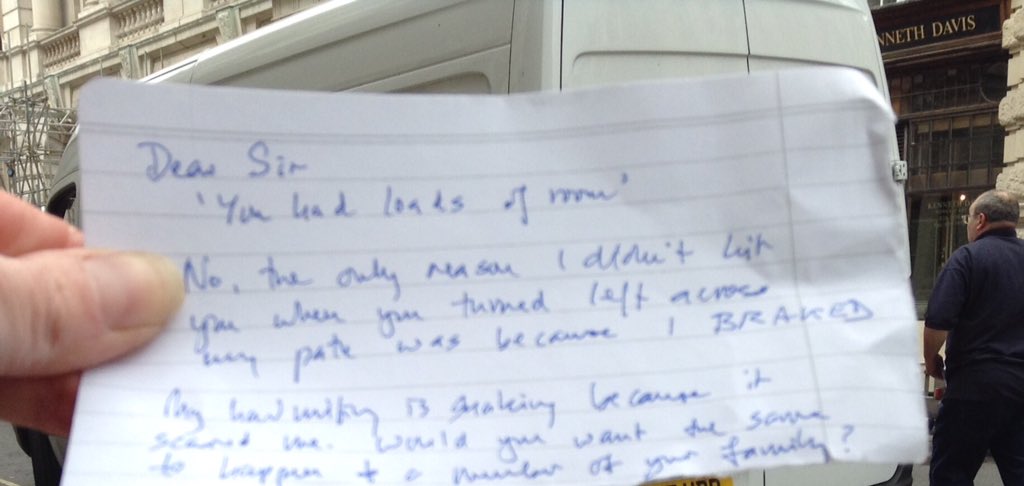 NNETH DAVIS
Dear Sir
'You had loads of room'
No, the only reason I didn't hit
you when you turned left across
my path was because I BRAKED
My handwriting is shaking because it
scared me. Would you want the same
to happen to a member of your family?